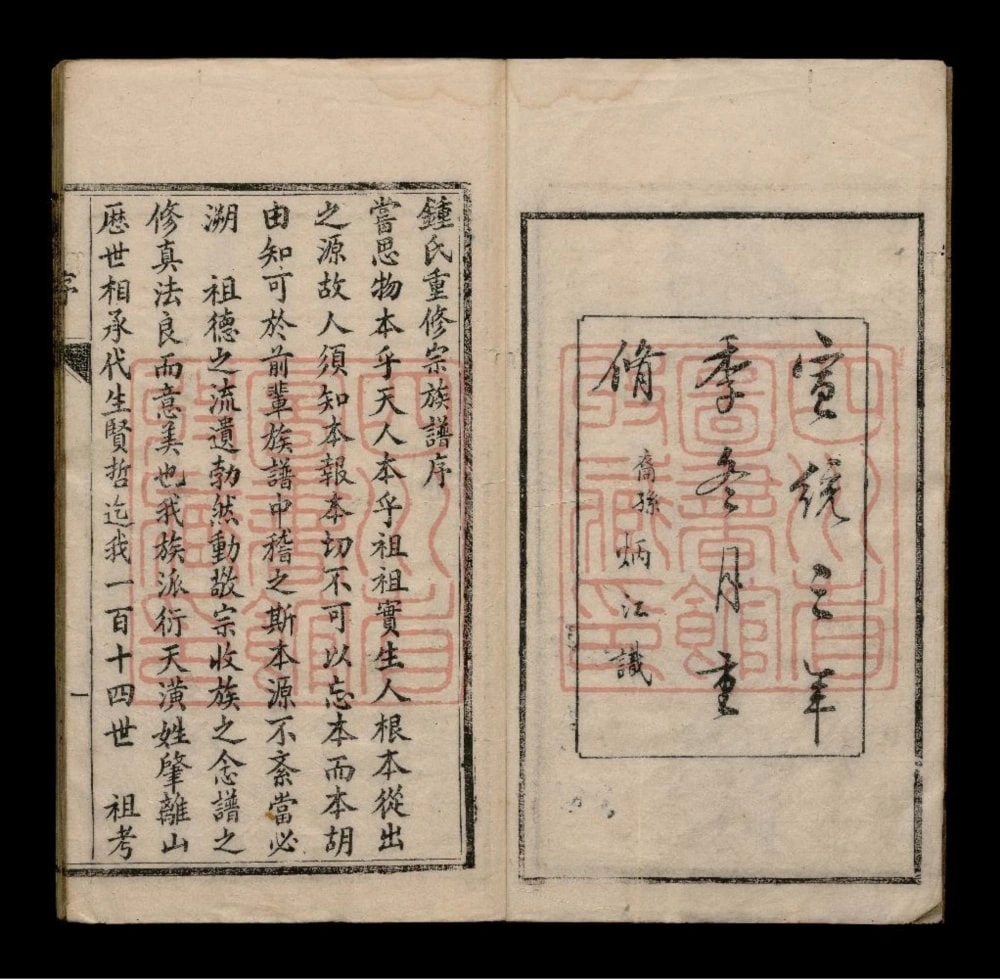 宣統三年
季冬月重
脩
裔孫炳江識
鍾氏重修宗族譜序
嘗思物本乎天人本乎祖祖實生人根本從出
之源故人須知本報本切不可以忘本而本胡
由知可於前輩族譜中稽之斯本源不紊當必
溯　祖德之流遺勃然動敬宗收族之念譜之
修真法良而意美也我族派衍天潢姓肇離山
歷世相承代生賢哲迄我一百十四世　祖考
序
一